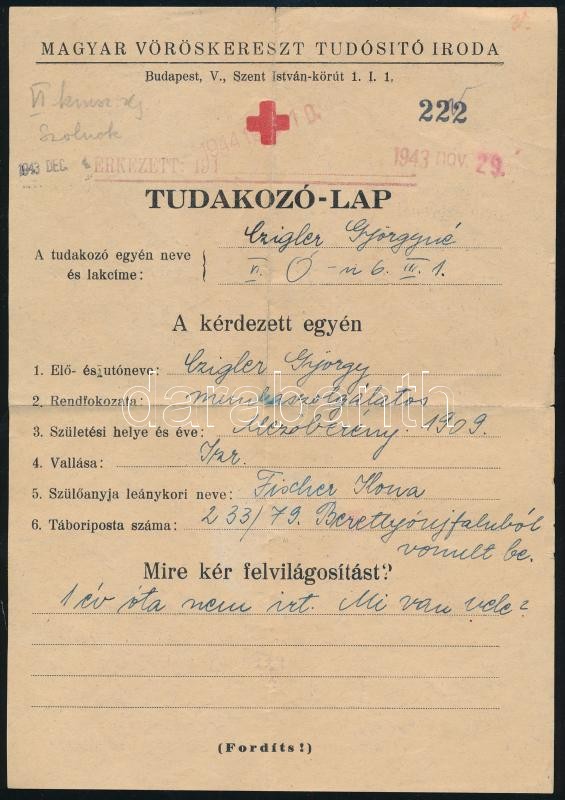 MAGYAR VÖRÖSKERESZT TUDÓSITÓ IRODA
Budapest, V., Szent István-körút 1. I. 1.
VI
Szolnok
222
1943 DEC.
ÉRKEZETT: 191
1944
1943 NOV. 29.
TUDAKOZÓ-LAP
A tudakozó egyén neve és lakcíme:
Czigler Györgyné
VI. Ó-u 6. III. 1.
A kérdezett egyén
1. Elő- és utóneve: Czigler György
2. Rendfokozata: munkaszolgálatos
3. Születési helye és éve: Mezőberény. 1909.
4. Vallása: Izr.
5. Szülőanyja leánykori neve: Fischer Ilona
6. Táboriposta száma: 233/79. Berettyóujfaluból
vonult be.
Mire kér felvilágosítást?
1 év óta nem irt. Mi van vele?
(Fordíts!)
darabanth